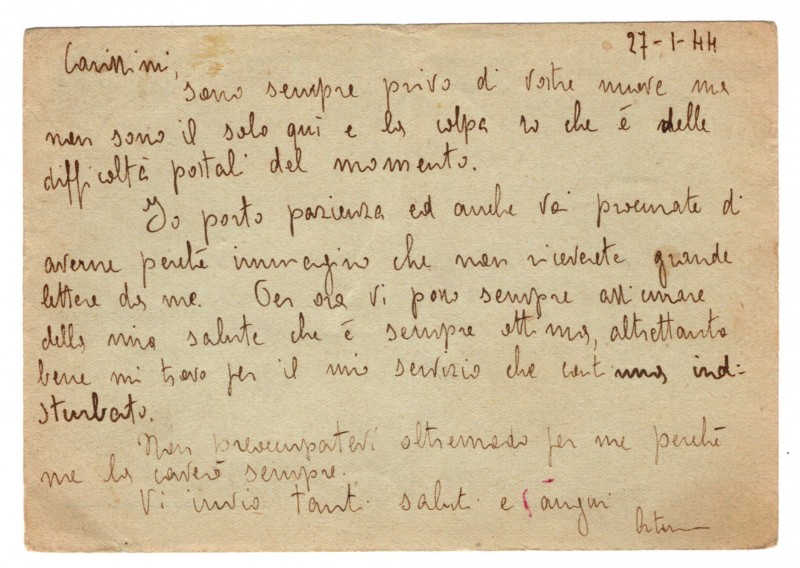 27-1-44
Carissimi,
sono sempre privo di vostre nuove ma
non sono il solo qui e la colpa so che è delle
difficoltà postali del momento.
Io porto pazienza ed anche voi procurate di
averne perchè immagino che non riceverete grande
lettere da me. Per ora vi posso sempre assicurare
della mia salute che è sempre ottima, altrettanto
bene mi trovo per il mio servizio che continua indi-
sturbato.
Non preocupatevi oltremodo per me perchè
me la caverò sempre.
Vi invio tanti saluti e auguri